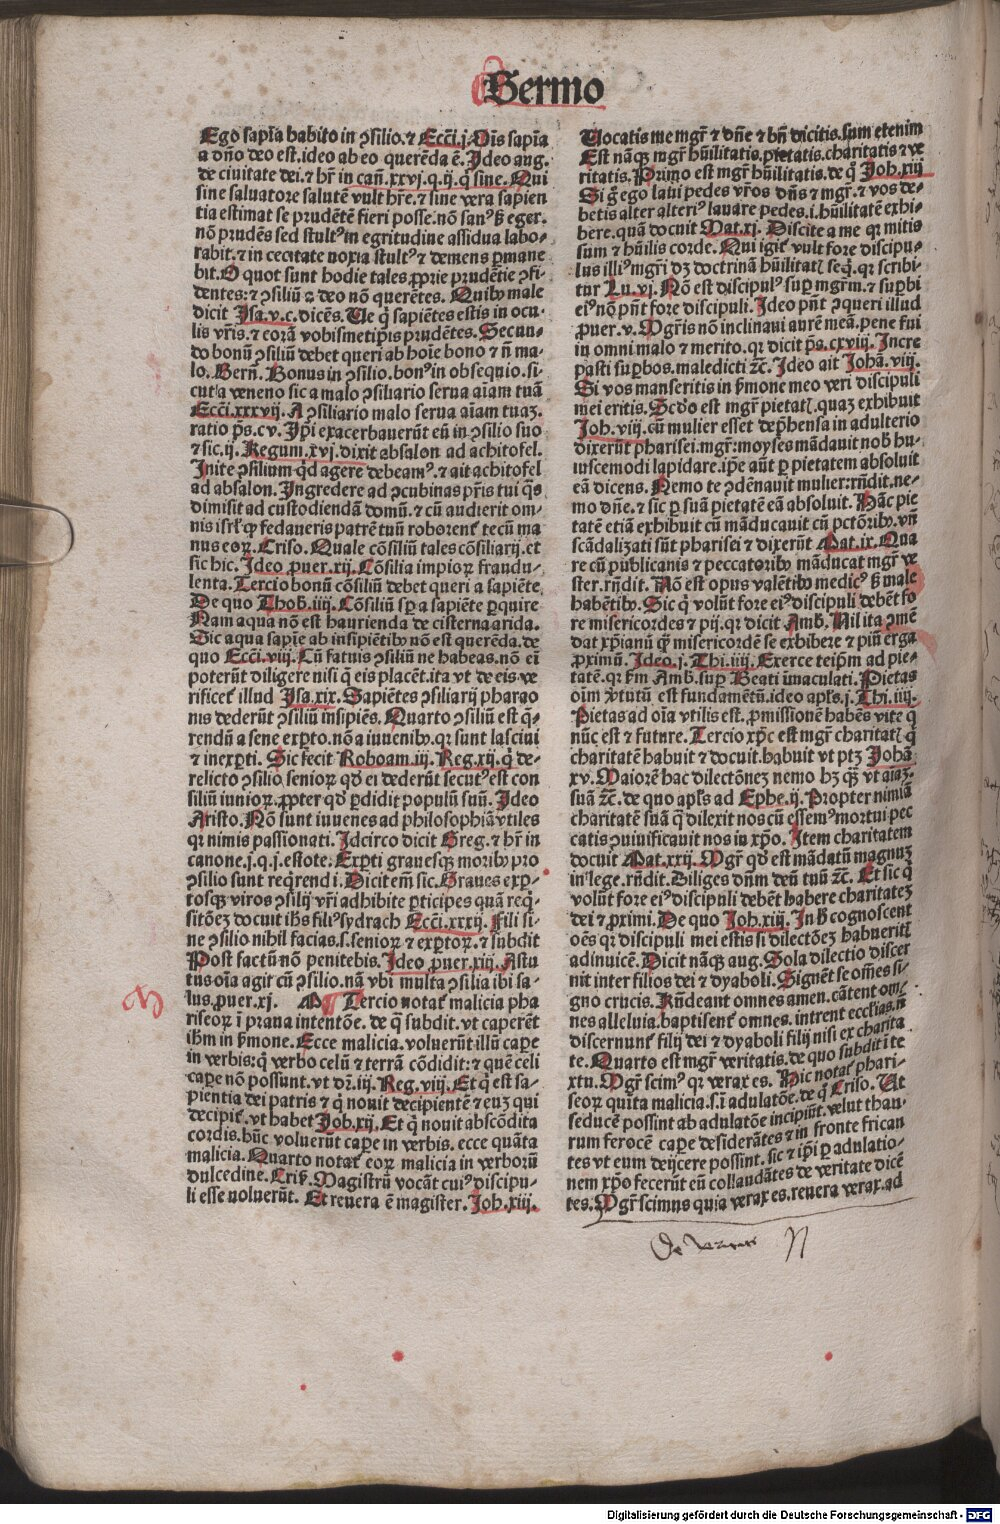 Sermo
Ego sapīa habito in ꝯsilio. ⁊ Ecci̅.j. Oīs sapīa
a dn̄o deo est. ideo ab eo querēda ē. Ideo aug.
de ciuitate dei. ⁊ hr̄ in can̄. xxvj. q. ij. q̄ sine. Qui
sine saluatore salutē vult hr̄e. ⁊ sine vera sapien
tia estimat se prudētē fieri posse. nō sanꝰ sꝫ eger.
nō prudēs sed stultꝰ in egritudine assidua labo-
rabit. ⁊ in cecitate noxia stultꝰ ⁊ demens ꝑmane
bit. O quot sunt hodie tales ꝓprie prudētie ꝯfi-
dentes: ⁊ ꝯsiliū a deo nō querētes. Quibꝰ male
dicit Isa. v. c. dicēs. Ue q̄ sapiētes estis in ocu-
lis vr̄is. ⁊ corā vobismetip̄is prudētes. Secun-
do bonū ꝯsiliū debet queri ab hoīe bono ⁊ n̄ ma-
lo. Bern̄. Bonus in ꝯsilio. bonꝰ in obsequio. si-
cut a veneno sic a malo ꝯsiliario serua aīam tuā
Ecci̅. xxxvij. A ꝯsiliario malo serua aīam tuaꝫ.
ratio p̄s. cv. Ip̄i exacerbauerūt eū in ꝯsilio suo
⁊ sic. ij. Regum. xvj. dixit absalon ad achitofel.
Inite ꝯsilium qͥd agere debeamꝰ. ⁊ ait achitofel
ad absalon. Ingredere ad ꝯcubinas pr̄is tui q̄s
dimisit ad custodiendā domū. ⁊ cū audierit om-
nis isrl̄ ꝙ fedaueris patrē tuū roborent̄ tecū ma
nus eoꝝ. Criso. Quale cōsiliū tales cōsiliarij. et
sic hic. Ideo ꝓuer. xij. Cōsilia impioꝝ fraudu-
lenta. Tercio bonū cōsiliū debet queri a sapiēte.
De quo Thob̄. iiij. Cōsiliū sꝑ a sapiēte ꝑquire
Nam aqua nō est haurienda de cisterna arida.
Sic aqua sapīe ab insipiētibꝰ nō est querēda. de
quo Ecci̅. viij. Cū fatuis ꝯsiliū ne habeas. nō eī
poterūt diligere nisi q̄ eis placēt. ita vt de eis ve
rificet̄ illud Isa. xix. Sapiētes ꝯsiliarij pharao
nis dederūt ꝯsiliū insipiēs. Quarto ꝯsiliū est q̄-
rendū a sene exꝑto. nō a iuuenibꝰ. qꝛ sunt lasciui
⁊ inexꝑti. Sic fecit Roboam. iij. Reg. xij. q̄ de-
relicto ꝯsilio senioꝝ qd̄ ei dederūt secutꝰ est con
siliū iunioꝝ. ꝓpter qd̄ ꝑdidit populū suū. Ideo
Aristo. Nō sunt iuuenes ad philosophiā vtiles
qꝛ nimis passionati. Idcirco dicit Greg. ⁊ hr̄ in
canone. j. q. j. estote. Exꝑti grauesqꝫ moribꝰ pro
ꝯsilio sunt reqͥrendi. Dicit em̄ sic. Graues exꝑ-
tosqꝫ viros ꝯsilij vr̄i adhibite ꝑticipes quā reqͥ-
sitōeꝫ docuit ih̄s filiꝰ sydrach Ecci̅. xxxij. Fili si-
ne ꝯsilio nihil facias. s. senioꝝ ⁊ exꝑtoꝝ. ⁊ subdit
Post factū nō penitebis. Ideo ꝓuer. xiij. Astu
tus oīa agit cū ꝯsilio. nā vbi multa ꝯsilia ibi sa-
lus. ꝓuer. xj. ¶ Tercio notat̄ malicia pha
riseoꝝ ī praua intentōe. de q̄ subdit. vt caperēt
ih̄m in ẜmone. Ecce malicia. voluerūt illū caꝑe
in verbis: q̄ verbo celū ⁊ terrā cōdidit: ⁊ quē celi
caꝑe nō possunt. vt dr̄. iij. Reg. viij. Et q̄ est sa-
pientia dei patris ⁊ q̄ nouit decipientē ⁊ euꝫ qui
decipit̄. vt habet̄ Job. xij. Et q̄ nouit abscōdita
cordis. hūc voluerūt caꝑe in verbis. ecce quāta
malicia. Quarto notat̄ eoꝝ malicia in verborū
dulcedine. Magistrū vocāt cuiꝰ discipu-
li esse noluerūt. Et reuera ē magister. Joh. xiij.
Uocatis me mgr̄ ⁊ dn̄e ⁊ bn̄ dicitis. sum etenim
Est nāqꝫ mgr̄ hūilitatis. pietatis. charitatis ⁊ ve
ritatis. Primo est mgr̄ hūilitatis. de q̄ Joh. xiij
Si g̊ ego laui pedes vr̄os dn̄s ⁊ mgr̄. ⁊ vos de-
betis alter alteriꝰ lauare pedes. i. hūilitatē exhi-
bere. quā docuit Mat. xj. Discite a me qꝛ mitis
sum ⁊ hūilis corde. Qui igit̄ vult fore discipu-
lus illiꝰ mgr̄i dꝫ doctrinā hūilitatꝭ seq̄. qꝛ scribi-
tur Lu. vj. Nō est discipulꝰ suꝑ mgr̄m. ⁊ suꝑbi
eiꝰ nō pn̄t fore discipuli. Ideo pn̄t ꝯqueri illud
ꝓuer. v. Mgr̄is nō inclinaui aurē meā. pene fui
in omni malo ⁊ merito. qꝛ dicit p̄s. cxviij. Incre
pasti suꝑbos. maledicti ⁊c̄. Ideo ait Johā. viij.
Si vos manseritis in ẜmone meo veri discipuli
mei eritis. Scd̄o est mgr̄ pietatꝭ. quaꝫ exhibuit
Joh. viij. cū mulier esset dep̄hensa in adulterio
dixerūt pharisei. mgr̄: moyses mādauit nob̄ hu-
iuscemodi lapidare. ip̄e aūt ꝑ pietatem absoluit
eā dicens. Nemo te ꝯdēnauit mulier: rn̄dit. ne-
mo dn̄e. ⁊ sic ꝑ suā pietatē eā absoluit. Hāc pie
tatē etiā exhibuit cū māducauit cū pctōribꝰ. vn̄
scādalizati sūt pharisei ⁊ dixerūt Mat. ix. Qua
re cū publicanis ⁊ peccatoribꝰ māducat mgr̄ ve
ster. rn̄dit. Nō est opus valētibꝰ medicꝰ sꝫ male
habētibꝰ. Sic q̄ volūt fore eiꝰ discipuli debēt fo
re misericordes ⁊ pij. qꝛ dicit Amb̄. Nil ita ꝯmē
dat xp̄ianū ꝙ̄ misericordē se exhibere ⁊ piū erga
ꝓximū. Ideo. j. Thi. iiij. Exerce teip̄m ad pie-
tatē. qꝛ ẜm Amb̄. suꝑ Beati īmaculati. Pietas
oīm ꝟtutū est fundamētū. ideo apl̄s. j. Thi. iiij.
Pietas ad oīa vtilis est. ꝓmissionē habēs vite q̄
nūc est ⁊ future. Tercio xp̄c est mgr̄ charitatꝭ q̄
charitatē habuit ⁊ docuit. habuit vt ptꝫ Johā
xv. Maiorē hac dilectōneꝫ nemo hꝫ qꝫ vt aīaꝫ.
suā ⁊c̄. de quo apl̄s ad Ephe. ij. Propter nimiā
charitatē suā q̄ dilexit nos cū essemꝰ mortui pec
catis ꝯuiuificauit nos in xp̄o. Item charitatem
docuit Mat. xxij. Mgr̄ qd̄ est mādatū magnuꝫ
in lege. rn̄dit. Diliges dn̄m deū tuū ⁊c̄. Et sic q̄
volūt fore eiꝰ discipuli debēt habere charitateꝫ
dei ⁊ ꝓximi. De quo Joh. xiij. In h̄ cognoscent
oēs qꝛ discipuli mei estis si dilectōeꝫ habueritꝭ
adinuicē. Dicit nāqꝫ aug. Sola dilectio discer
nit inter filios dei ⁊ dyaboli. Signēt se om̄es si-
gno crucis. Rn̄deant omnes amen. cātent om̄-
nes alleluia. baptisent̄ omnes. intrent ecclīas. n̄
discernunt̄ filij dei ⁊ dyaboli filij nisi ex charita
te. Quarto est mgr̄ veritatis. de quo subdit ī te
xtu. Mgr̄ scimꝰ qꝛ verax es. Hic notat̄ phari-
seoꝝ quīta malicia. s. ī adulatōe. de q̄ Criso. Ut
seducē possint ab adulatōe incipiūt. velut thau-
rum ferocē caꝑe desiderātes ⁊ in fronte frican
tes vt eum deijcere possint. sic ⁊ ip̄i ꝑ adulatio-
nem xp̄o fecerūt eū collaudātes de veritate dicē
tes. Mgr̄ scimus quia verax es. reuera verax. ad
Digitalisierung gefördert durch die Deutsche Forschungsgemeinschaft - DFG